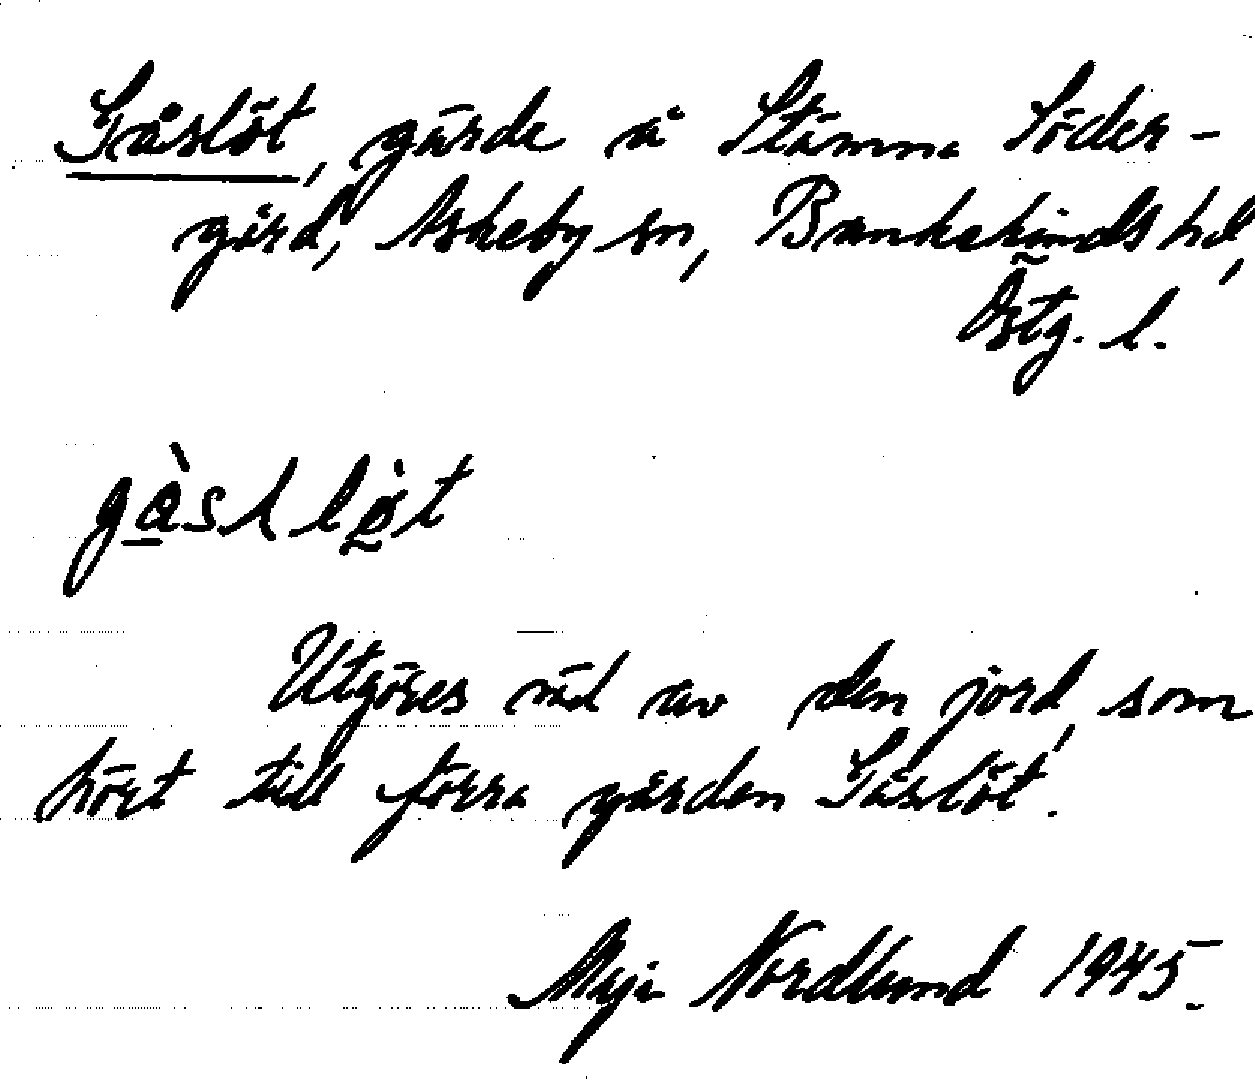 Gåslöt, gärde å Stämma Söder-
gård, Askeby sn, Bankekinds hd,
Östg. l.
gàsklø̀t
Utgöres nu av den jord, som
hört till förra gården Gåslöt.
Maja Nordlund 1945.